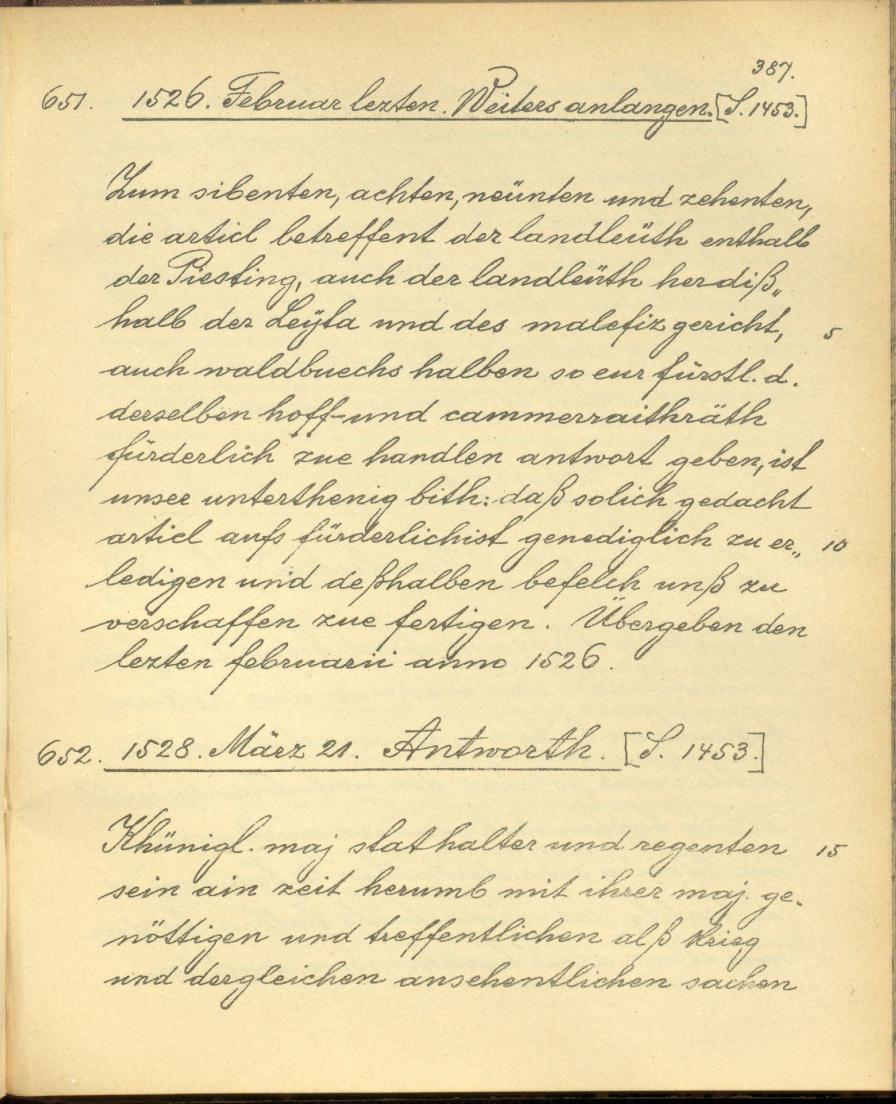 387.
651. 1526. Februar lezten. Weiters anlangen. [S. 1453.]
Zum sibenten, achten, neünten und zehenten,
die articl betreffent der landleüth enthalb
der Piesting, auch der landleüth herdiß„
halb der Leÿta und des malefiz gericht, 5
auch waldbuechs halben so eur fürstl. d.
derselben hoff- und cammerraithräth
fürderlich zue handlen antwort geben, ist
unser unterthenig bith: daß solich gedacht
articl aufs fürderlichist genediglich zu er„ 10
ledigen und deßhalben befelch unß zu
verschaffen zue fertigen. Übergeben den
lezten februarii anno 1526.
652. 1528. März 21. Antworth. [S. 1453.]
Khünigl. maj stathalter und regenten 15
sein ain zeit herumb mit ihrer maj. ge-
nöttigen und treffentlichen alß krieg
und dergleichen ansehentlichen sachen